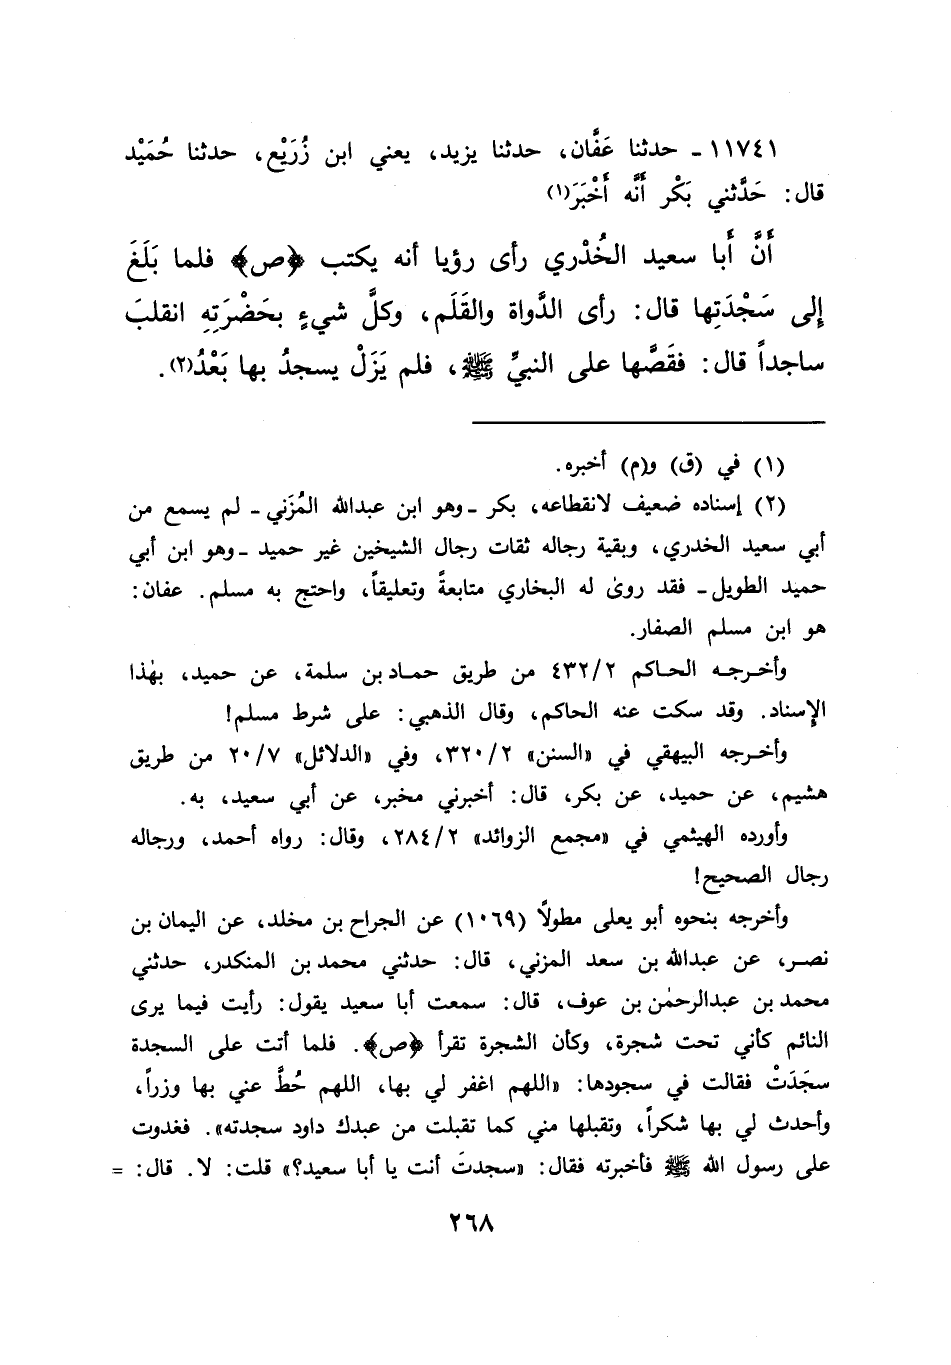 ١١٧٤١ - حدثنا عَفَّان، حدثنا يزيد، يعني ابن زُرَيْع، حدثنا حُمَيْد
قال: حَدَّثني بَكْر أَنَّه أَخْبَرَ(١)
أَنَّ أَبا سعيد الخُدْري رأى رؤيا أنه يكتب ﴿ص﴾ فلما بَلَغَ
إلى سَجْدَتِها قال: رأى الدَّواة والقَلَم، وكلَّ شيءٍ بحَضْرَتِهِ انقلبَ
ساجداً قال: فقَصَّها على النبيِّ ﷺ، فلم يَزَلْ يسجدُ بها بَعْدُ(٢).
(١) في (ق) و(م) أخبره.
(٢) إسناده ضعيف لانقطاعه، بكر - وهو ابن عبدالله المُزَني - لم يسمع من
أبي سعيد الخدري، وبقية رجاله ثقات رجال الشيخين غير حميد - وهو ابن أبي
حميد الطويل - فقد روىٰ له البخاري متابعةً وتعليقاً، واحتج به مسلم. عفان:
هو ابن مسلم الصفار.
وأخرجه الحاكم ٤٣٢/٢ من طريق حماد بن سلمة، عن حميد، بهٰذا
الإسناد. وقد سكت عنه الحاكم، وقال الذهبي: على شرط مسلم!
وأخرجه البيهقي في «السنن» ٣٢٠/٢، وفي «الدلائل» ٢٠/٧ من طريق
هشيم، عن حميد، عن بكر، قال: أخبرني مخبر، عن أبي سعيد، به.
وأورده الهيثمي في «مجمع الزوائد» ٢٨٤/٢، وقال: رواه أحمد، ورجاله
رجال الصحيح!
وأخرجه بنحوه أبو يعلى مطولاً (١٠٦٩) عن الجراح بن مخلد، عن اليمان بن
نصر، عن عبدالله بن سعد المزني، قال: حدثني محمد بن المنكدر، حدثني
محمد بن عبدالرحمٰن بن عوف، قال: سمعت أبا سعيد يقول: رأيت فيما يرى
النائم كأني تحت شجرة، وكأن الشجرة تقرأ ﴿ص﴾. فلما أتت على السجدة
سجَدَتْ فقالت في سجودها: «اللهم اغفر لي بها، اللهم حُطَّ عني بها وزراً،
وأحدث لي بها شكراً، وتقبلها مني كما تقبلت من عبدك داود سجدته». فغدوت
على رسول الله ﷺ فأخبرته فقال: «سجدتَ أنت يا أبا سعيد؟» قلت: لا. قال: =
٢٦٨